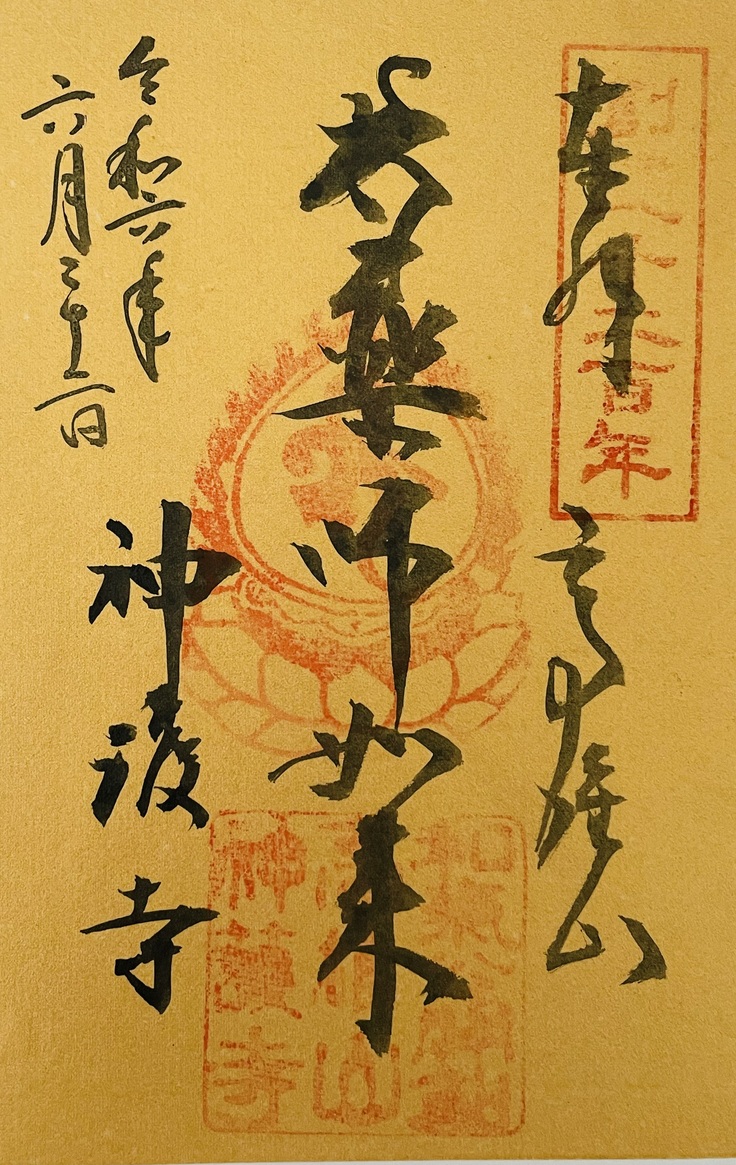 一千二百年
奉拝 高雄山
薬師如来
令和六年
六月二十二日
神護寺
和氣公開創
高雄山
神護寺